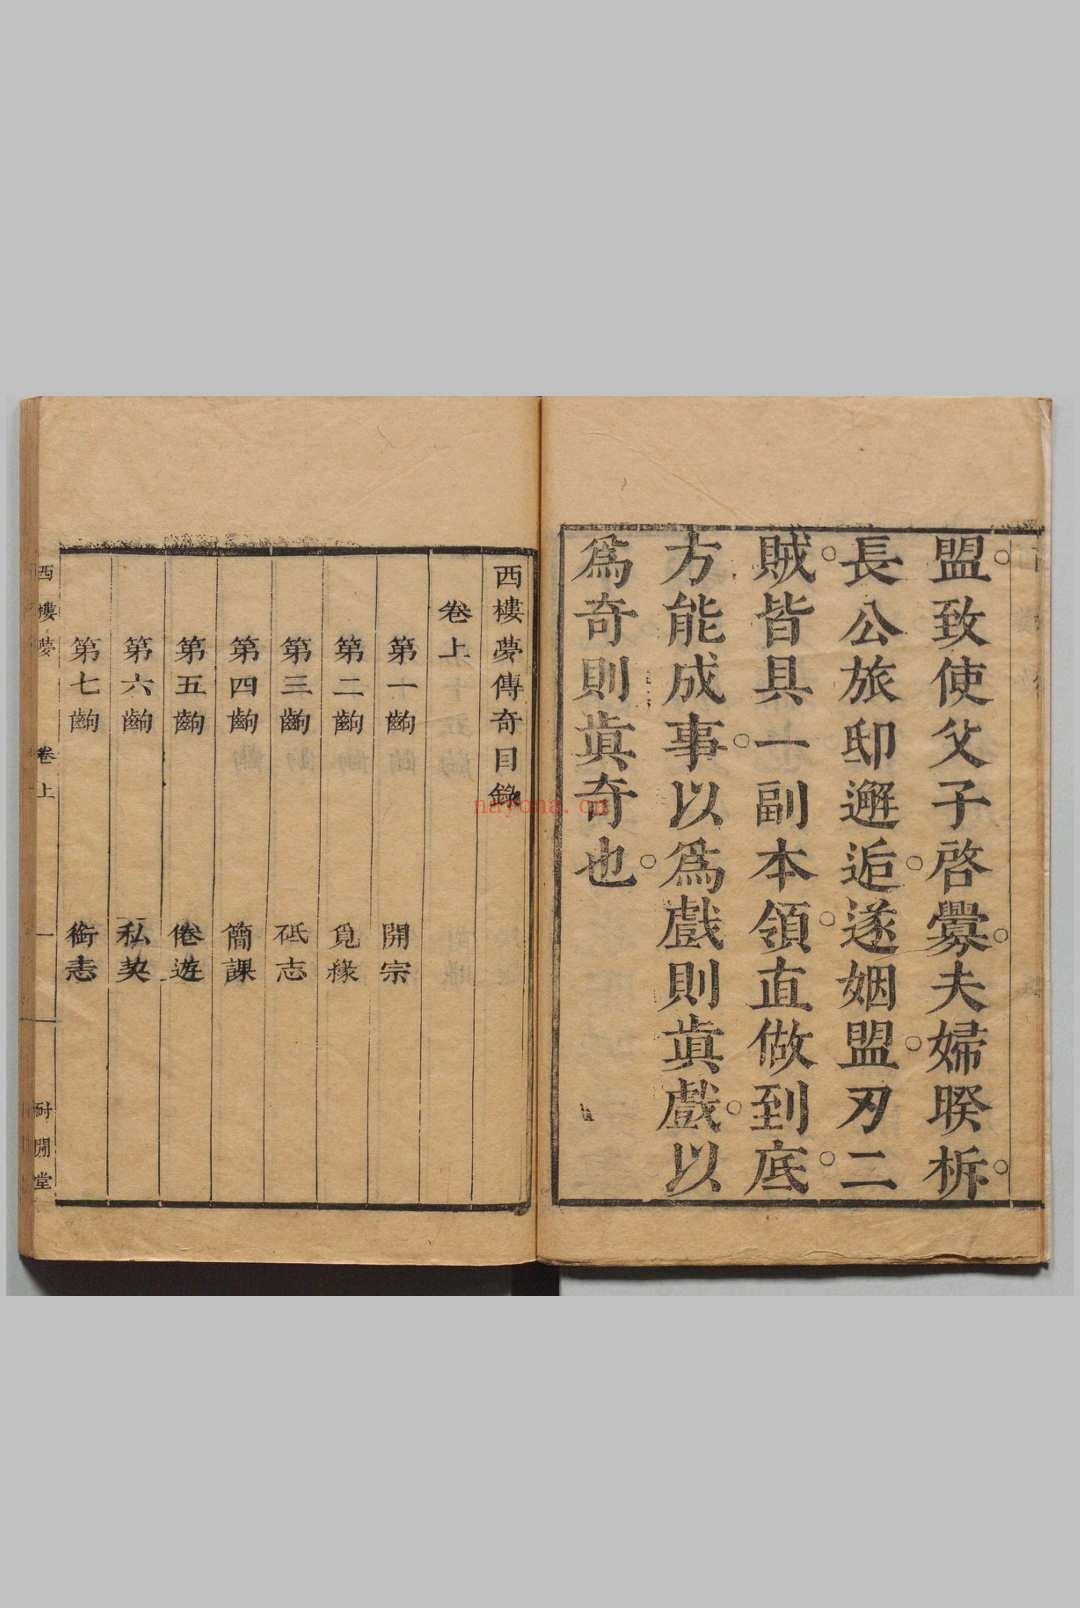 盟致使父子啓釁夫婦睽柝
長公旅邸邂逅遂姻盟刃二
賊皆具一副本領直做到底
方能成事以爲戲則眞戲以
爲奇則眞奇也
西樓夢傳奇目錄
卷上
第一齣 開宗
第二齣 覓緣
第三齣 砥志
第四齣 簡課
第五齣 倦遊
第六齣 私契
第七齣 銜恚
西樓夢 卷上 一 耐閒堂
nayona.cn